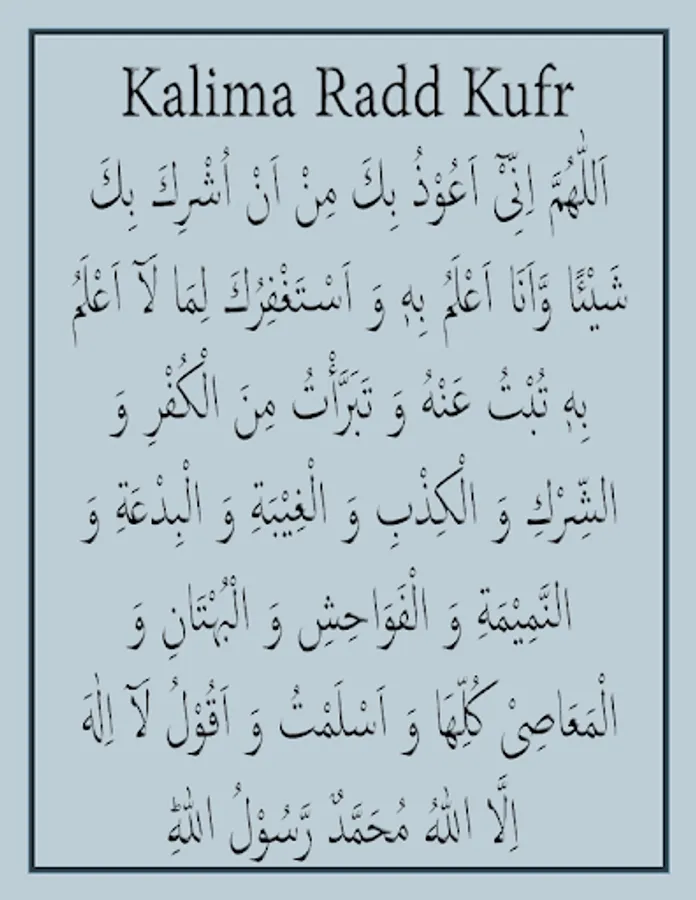 Kalima Radd Kufr
اَللّٰهُمَّ اِنِّیْٓ اَعُوْذُ بِكَ مِنْ اَنْ اُشْرِكَ بِكَ
شَیْئًا وَّاَنَا اَعْلَمُ بِهٖ وَ اَسْتَغْفِرُكَ لِمَا لَآ اَعْلَمُ
بِهٖ تُبْتُ عَنْهُ وَ تَبَرَّأْتُ مِنَ الْكُفْرِ وَ
الشِّرْكِ وَ الْكِذْبِ وَ الْغِیْبَةِ وَ الْبِدْعَةِ وَ
النَّمِیْمَةِ وَ الْفَوَاحِشِ وَ الْبُهْتَانِ وَ
الْمَعَاصِیْ كُلِّهَا وَ اَسْلَمْتُ وَ اَقُوْلُ لَآ اِلٰهَ
اِلَّا اللّٰهُ مُحَمَّدٌ رَّسُوْلُ اللّٰهِؕ